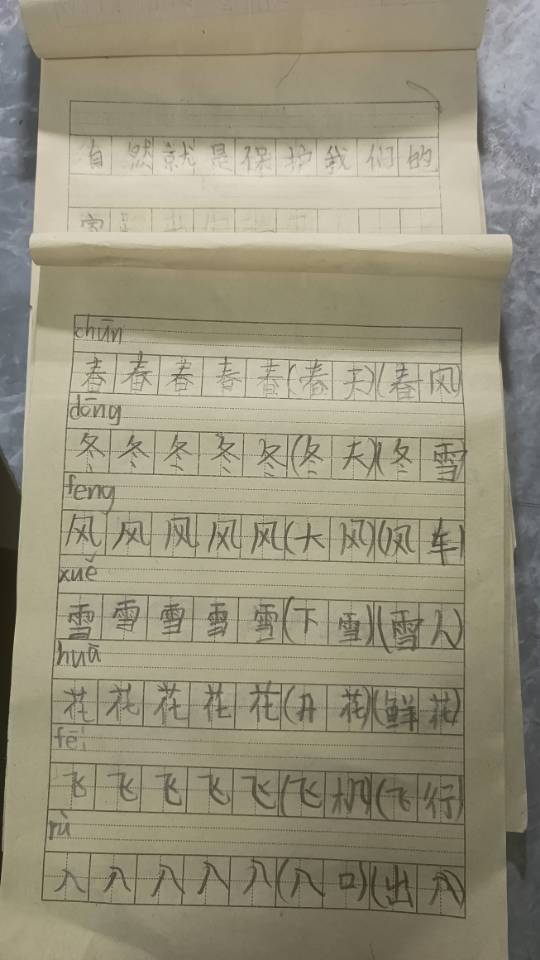 自然就是保护我们的
家
chūn
春春春春春(春天)(春风)
dōng
冬冬冬冬冬(冬天)(冬雪)
feng
风风风风风(大风)(风车)
xuě
雪雪雪雪雪(下雪)(雪人)
huā
花花花花花(开花)(鲜花)
fēi
飞飞飞飞飞(飞机)(飞行)
rù
入入入入入(入口)(出入)